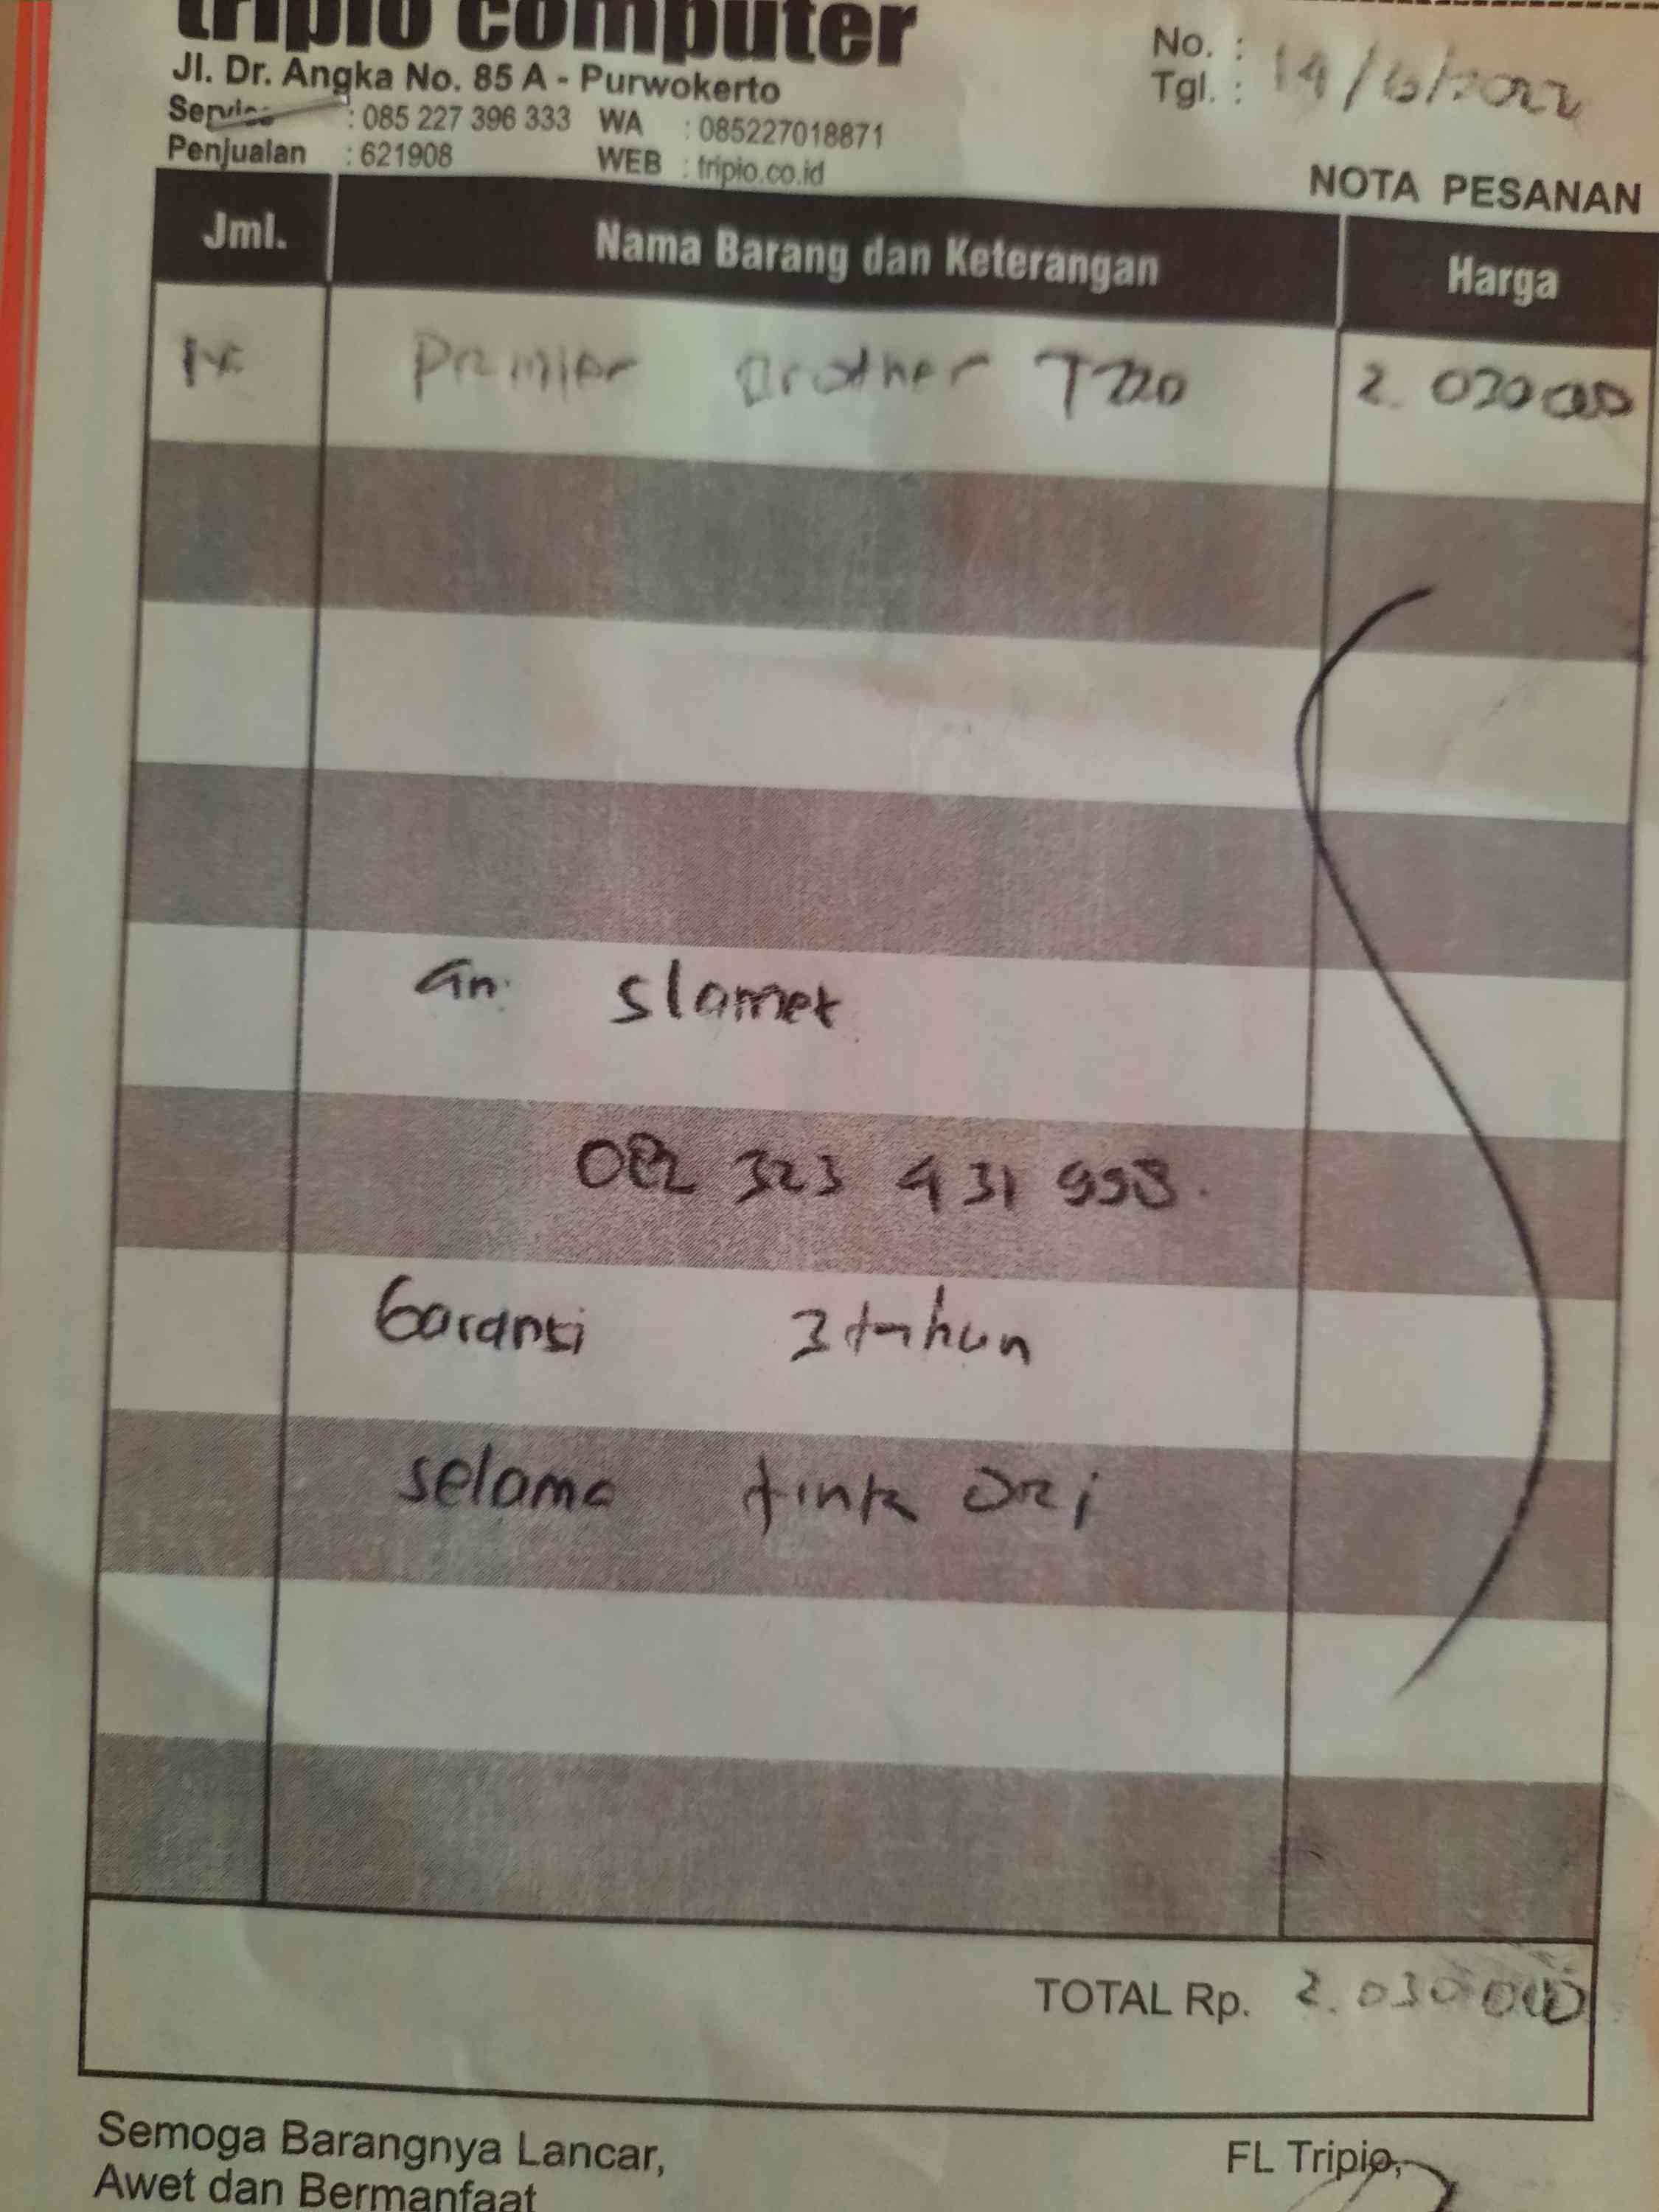 tripio computer
Jl. Dr. Angka No. 85 A - Purwokerto
Service : 085 227 396 333 WA : 085227018871
Penjualan : 621908 WEB : tripio.co.id
No. :
Tgl. : 14/6/2022
NOTA PESANAN
Jml. Nama Barang dan Keterangan Harga
1x Brother T220 2.030000
an. slamet
082 323 431 998.
Garansi 3 tahun
selama tinta Ori
TOTAL Rp. 2.030000
Semoga Barangnya Lancar,
Awet dan Bermanfaat
FL Tripio,